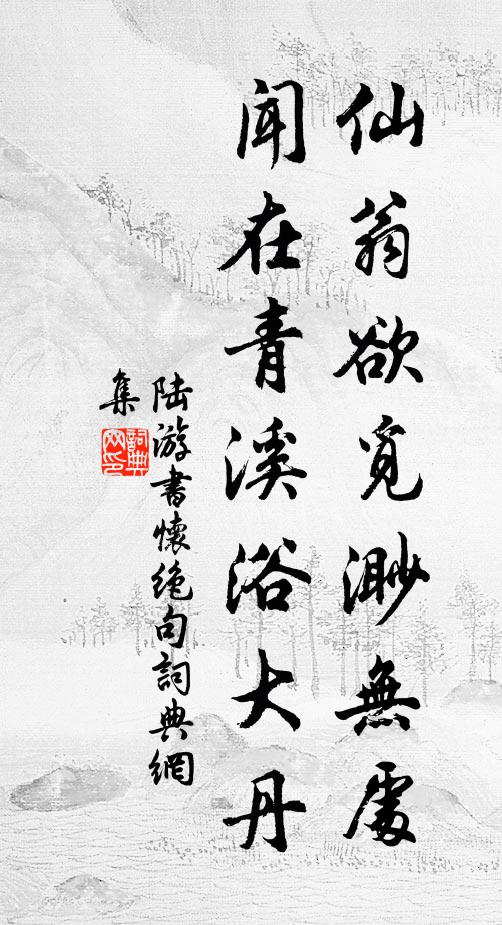 仙翁欲覓渺無處
聞在青溪浴大丹
陆游書懷絕句詞典網
集
詞典網印